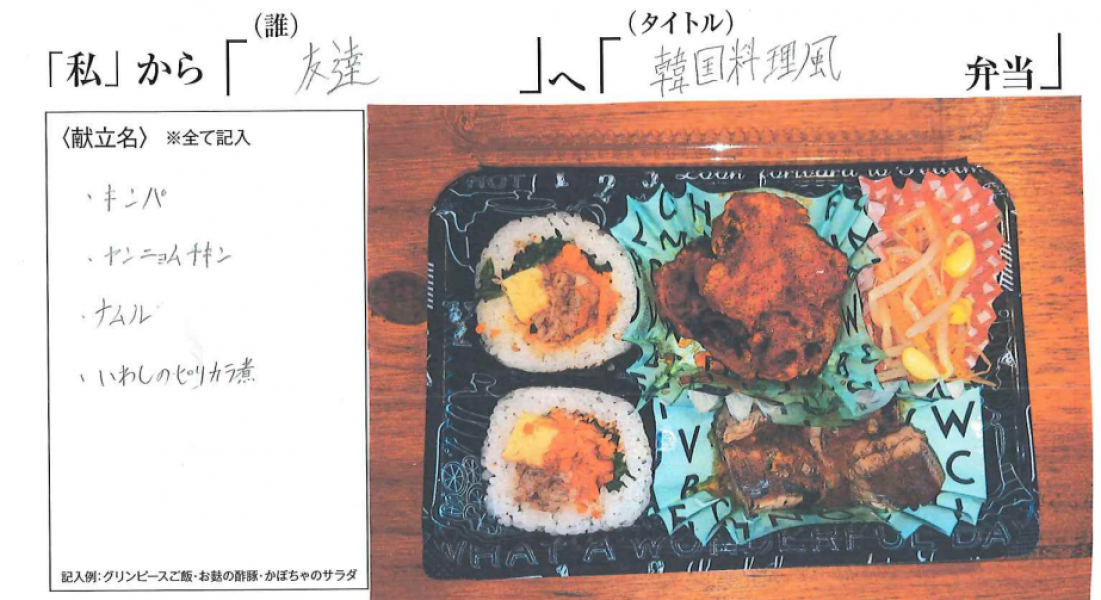 (誰)
(タイトル)
「私」から「友達」へ「韓国料理風 弁当」
〈献立名〉 ※全て記入
・キンパ
・ヤンニョムチキン
・ナムル
・いわしのピリカラ煮
記入例:グリンピースご飯・お麩の酢豚・かぼちゃのサラダ
1 2 3 Look forward to
WHAT A WONDERFUL DAY